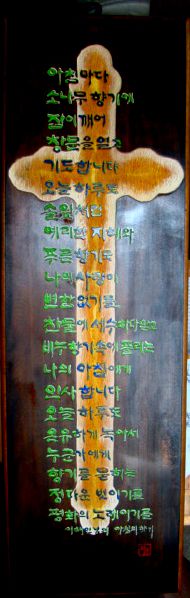 아침마다
소나무 향기에
잠이 깨어
창문을 열고
기도합니다
오늘 하루도
솔잎처럼
예리한 지혜와
푸른 향기로
나의 사랑이
변함없기를
찬물에 세수하다말고
비누향기속에 풀리는
나의 아침에게
인사합니다
오늘 하루도
온유하게 녹아서
누군가에게
향기를 묻히는
정다운 벗이기를
평화의 노래이기를
이해인님의 아침의 향기